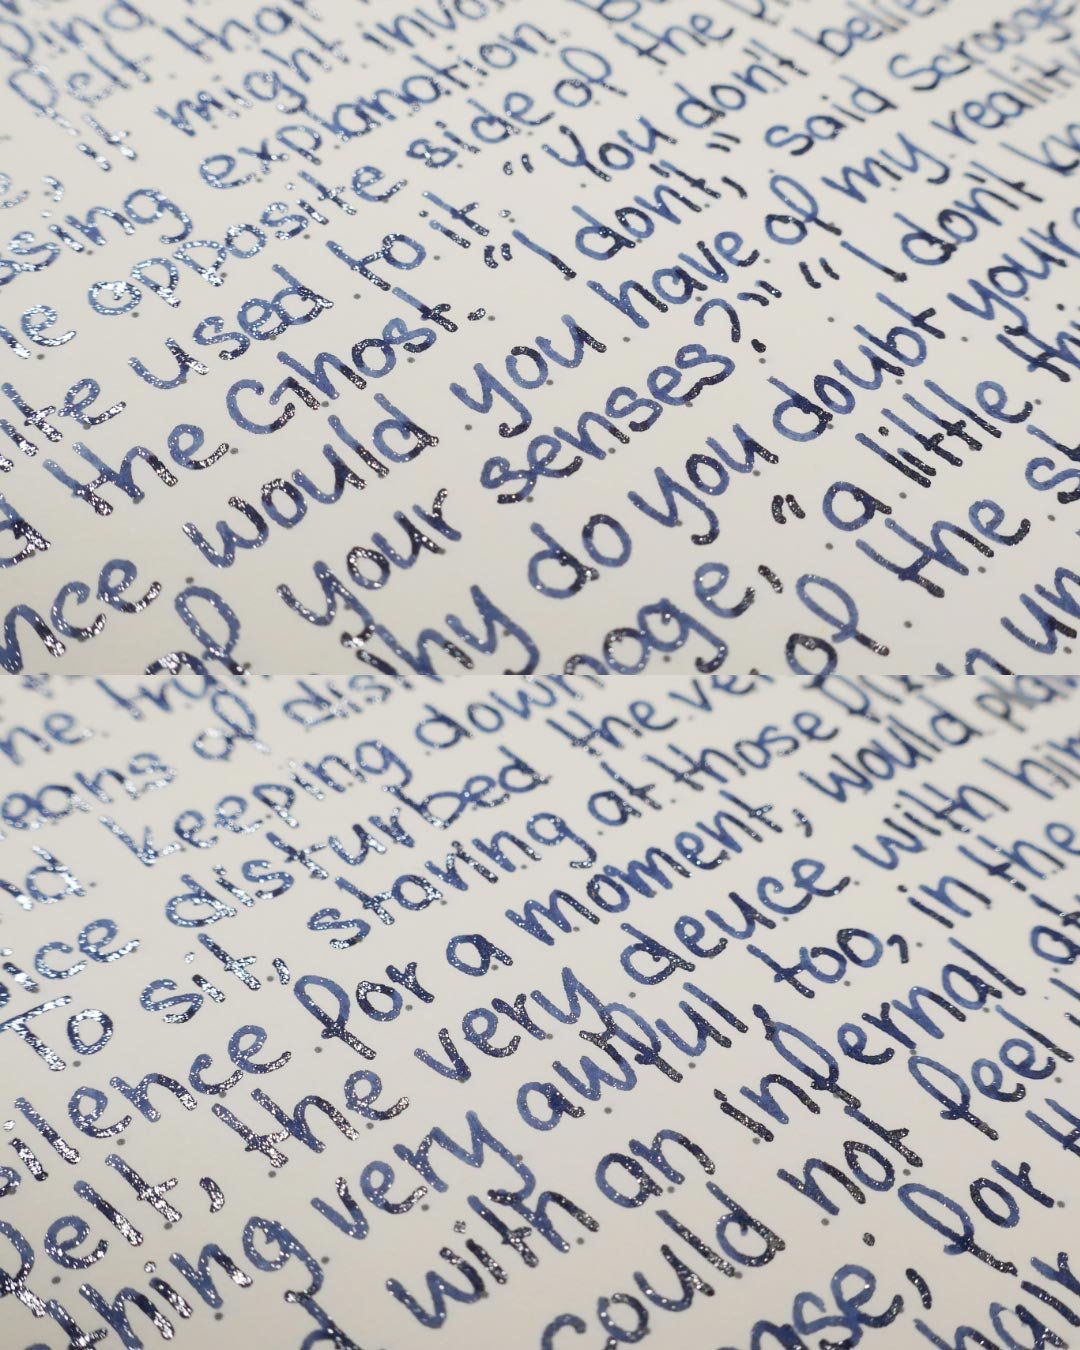 felt that
it might invo
sing explanation. B
opposite side of the
used to it. "You don't belie
the Ghost. "I don't," said Scrooge
nce would you have of my reality
of your senses?" "I don't kn
why do you doubt your
ooge, "a little thi
of the s
un
eans of dis
keeping down
oice disturbed the ve
To sit, staring at those
silence for a moment, would pla
felt, the very deuce with him
thing very awful too, in the
with an infernal at
could not feel
ase, for th
hair